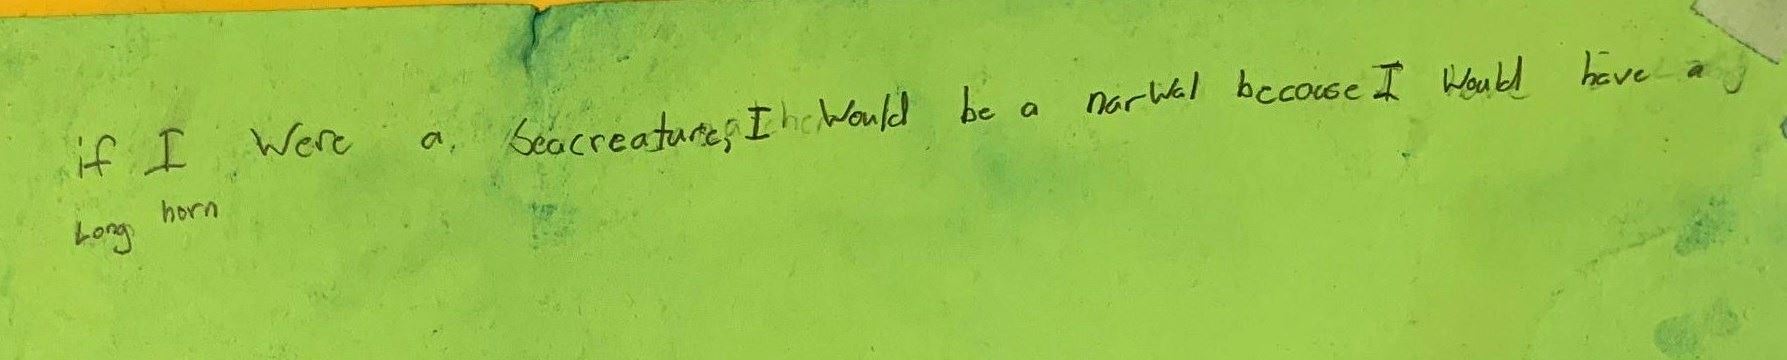 if I were a seacreature, I would be a narwal because I would have a
Long horn